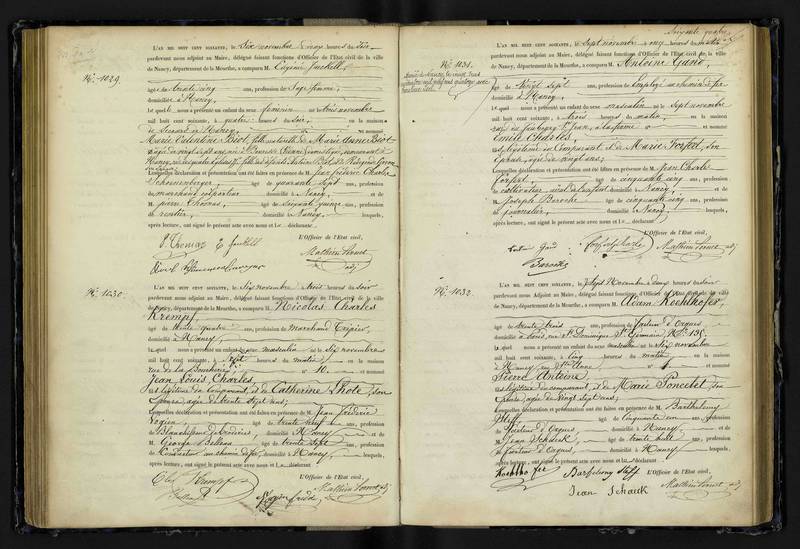 N.º 1029.
L'AN MIL HUIT CENT SOIXANTE, le Six novembre à onze heures du soir
pardevant nous adjoint au Maire, délégué faisant fonctions d'Officier d'Etat civil de la ville
de Nancy, département de la Meurthe, a comparu M. Eugénie
âgé de trente cinq ans, profession de Sage femme,
domicilié à Nancy,
lequel nous a présenté un enfant du sexe féminin né le trois novembre
mil huit cent soixante, à quatre heures du soir, en la maison
de Secours de Nancy, et nommé
Marie Valentine Biot, fille naturelle de Marie Anne Biot
Lesquelles déclaration et présentation ont été faites en présence de M. Jean frédéric Charles
Schonenberger, âgé de quarante sept ans, profession
de marchand domicilié à Nancy, et de
M. pierre Thomas, âgé de Soixante quinze ans, profession
de rentier, domicilié à Nancy, lesquels,
après lecture, ont signé le présent acte avec nous et l déclarant
L'Officier de l'Etat civil,
P. Thomas
Mathieu adj
N.º 1030.
L'AN MIL HUIT CENT SOIXANTE, le Six novembre heures du soir
pardevant nous adjoint au Maire, délégué faisant fonctions d'Officier d'Etat civil de la ville
de Nancy, département de la Meurthe, a comparu M. Nicolas Charles
Krempf,
âgé de trente quatre ans, profession de Marchand Tripier,
domicilié à Nancy,
lequel nous a présenté un enfant du sexe masculin né le Six novembre
mil huit cent soixante, à Sept heures du matin, en la maison
rue de la Boucherie, n.º 10. et nommé
Jean Louis Charles,
fils légitime du comparant, et de Catherine Lhote, son
épouse, âgée de trente Sept ans;
Lesquelles déclaration et présentation ont été faites en présence de M. Jean frédéric
Vogien âgé de trente neuf ans, profession
de domicilié à Nancy et de
M. George âgé de trente Sept ans, profession
de Conducteur au chemin de fer, domicilié à Nancy, lesquels,
après lecture, ont signé le présent acte avec nous et l déclarant
L'Officier de l'Etat civil,
Krempf
Mathieu adj
N.º 1031.
L'AN MIL HUIT CENT SOIXANTE, le Sept novembre à onze heures du matin
pardevant nous adjoint au Maire, délégué faisant fonctions d'Officier d'Etat civil de la ville
de Nancy, département de la Meurthe, a comparu M. Antoine Gand
âgé de Vingt sept ans, profession de Employé au chemin de fer
domicilié à Nancy,
lequel nous a présenté un enfant du sexe masculin né le Sept novembre
mil huit cent soixante, à trois heures du matin, en la maison
rue du faubourg St Jean, et nommé
Emile Charles
fils légitime du Comparant et de Marie Forfert, son
Epouse, âgée de vingt ans;
Lesquelles déclaration et présentation ont été faites en présence de M. Jean Charle
Forfert, âgé de cinquante cinq ans, profession
de cultivateur domicilié à Nancy, et de
M. Joseph Baroche âgé de cinquante cinq ans, profession
de journalier, domicilié à Nancy, lesquels,
après lecture, ont signé le présent acte avec nous et l déclarant
L'Officier de l'Etat civil,
Gand
Mathieu adj
Baroche
N.º 1032.
L'AN MIL HUIT CENT SOIXANTE, le Sept Novembre à deux heures du soir
pardevant nous Adjoint au Maire, délégué faisant fonctions d'Officier d'Etat civil de la ville
de Nancy, département de la Meurthe, a comparu M. Adam Kochlhofer,
âgé de trente trois ans, profession de facteur d'orgues
domicilié à Paris, rue St Dominique St Germain, N.º 135,
lequel nous a présenté un enfant du sexe masculin né le Six novembre
mil huit cent soixante, à Cinq heures du matin, en la maison
à Nancy, rue Ste Anne, n.º et nommé
Pierre Antoine
fils légitime du comparant, et de Marie Poncelet, son
Epouse âgée de Vingt Sept ans;
Lesquelles déclaration et présentation ont été faites en présence de M. Barthelemy
âgé de cinquante ans, profession
de facteur d'Orgues, domicilié à Nancy, et de
M. Jean Schauk âgé de trente huit ans, profession
de facteur d'Orgues, domicilié à Nancy, lesquels,
après lecture, ont signé le présent acte avec nous et l déclarant
L'Officier de l'Etat civil,
Mathieu adj
Jean Schauk